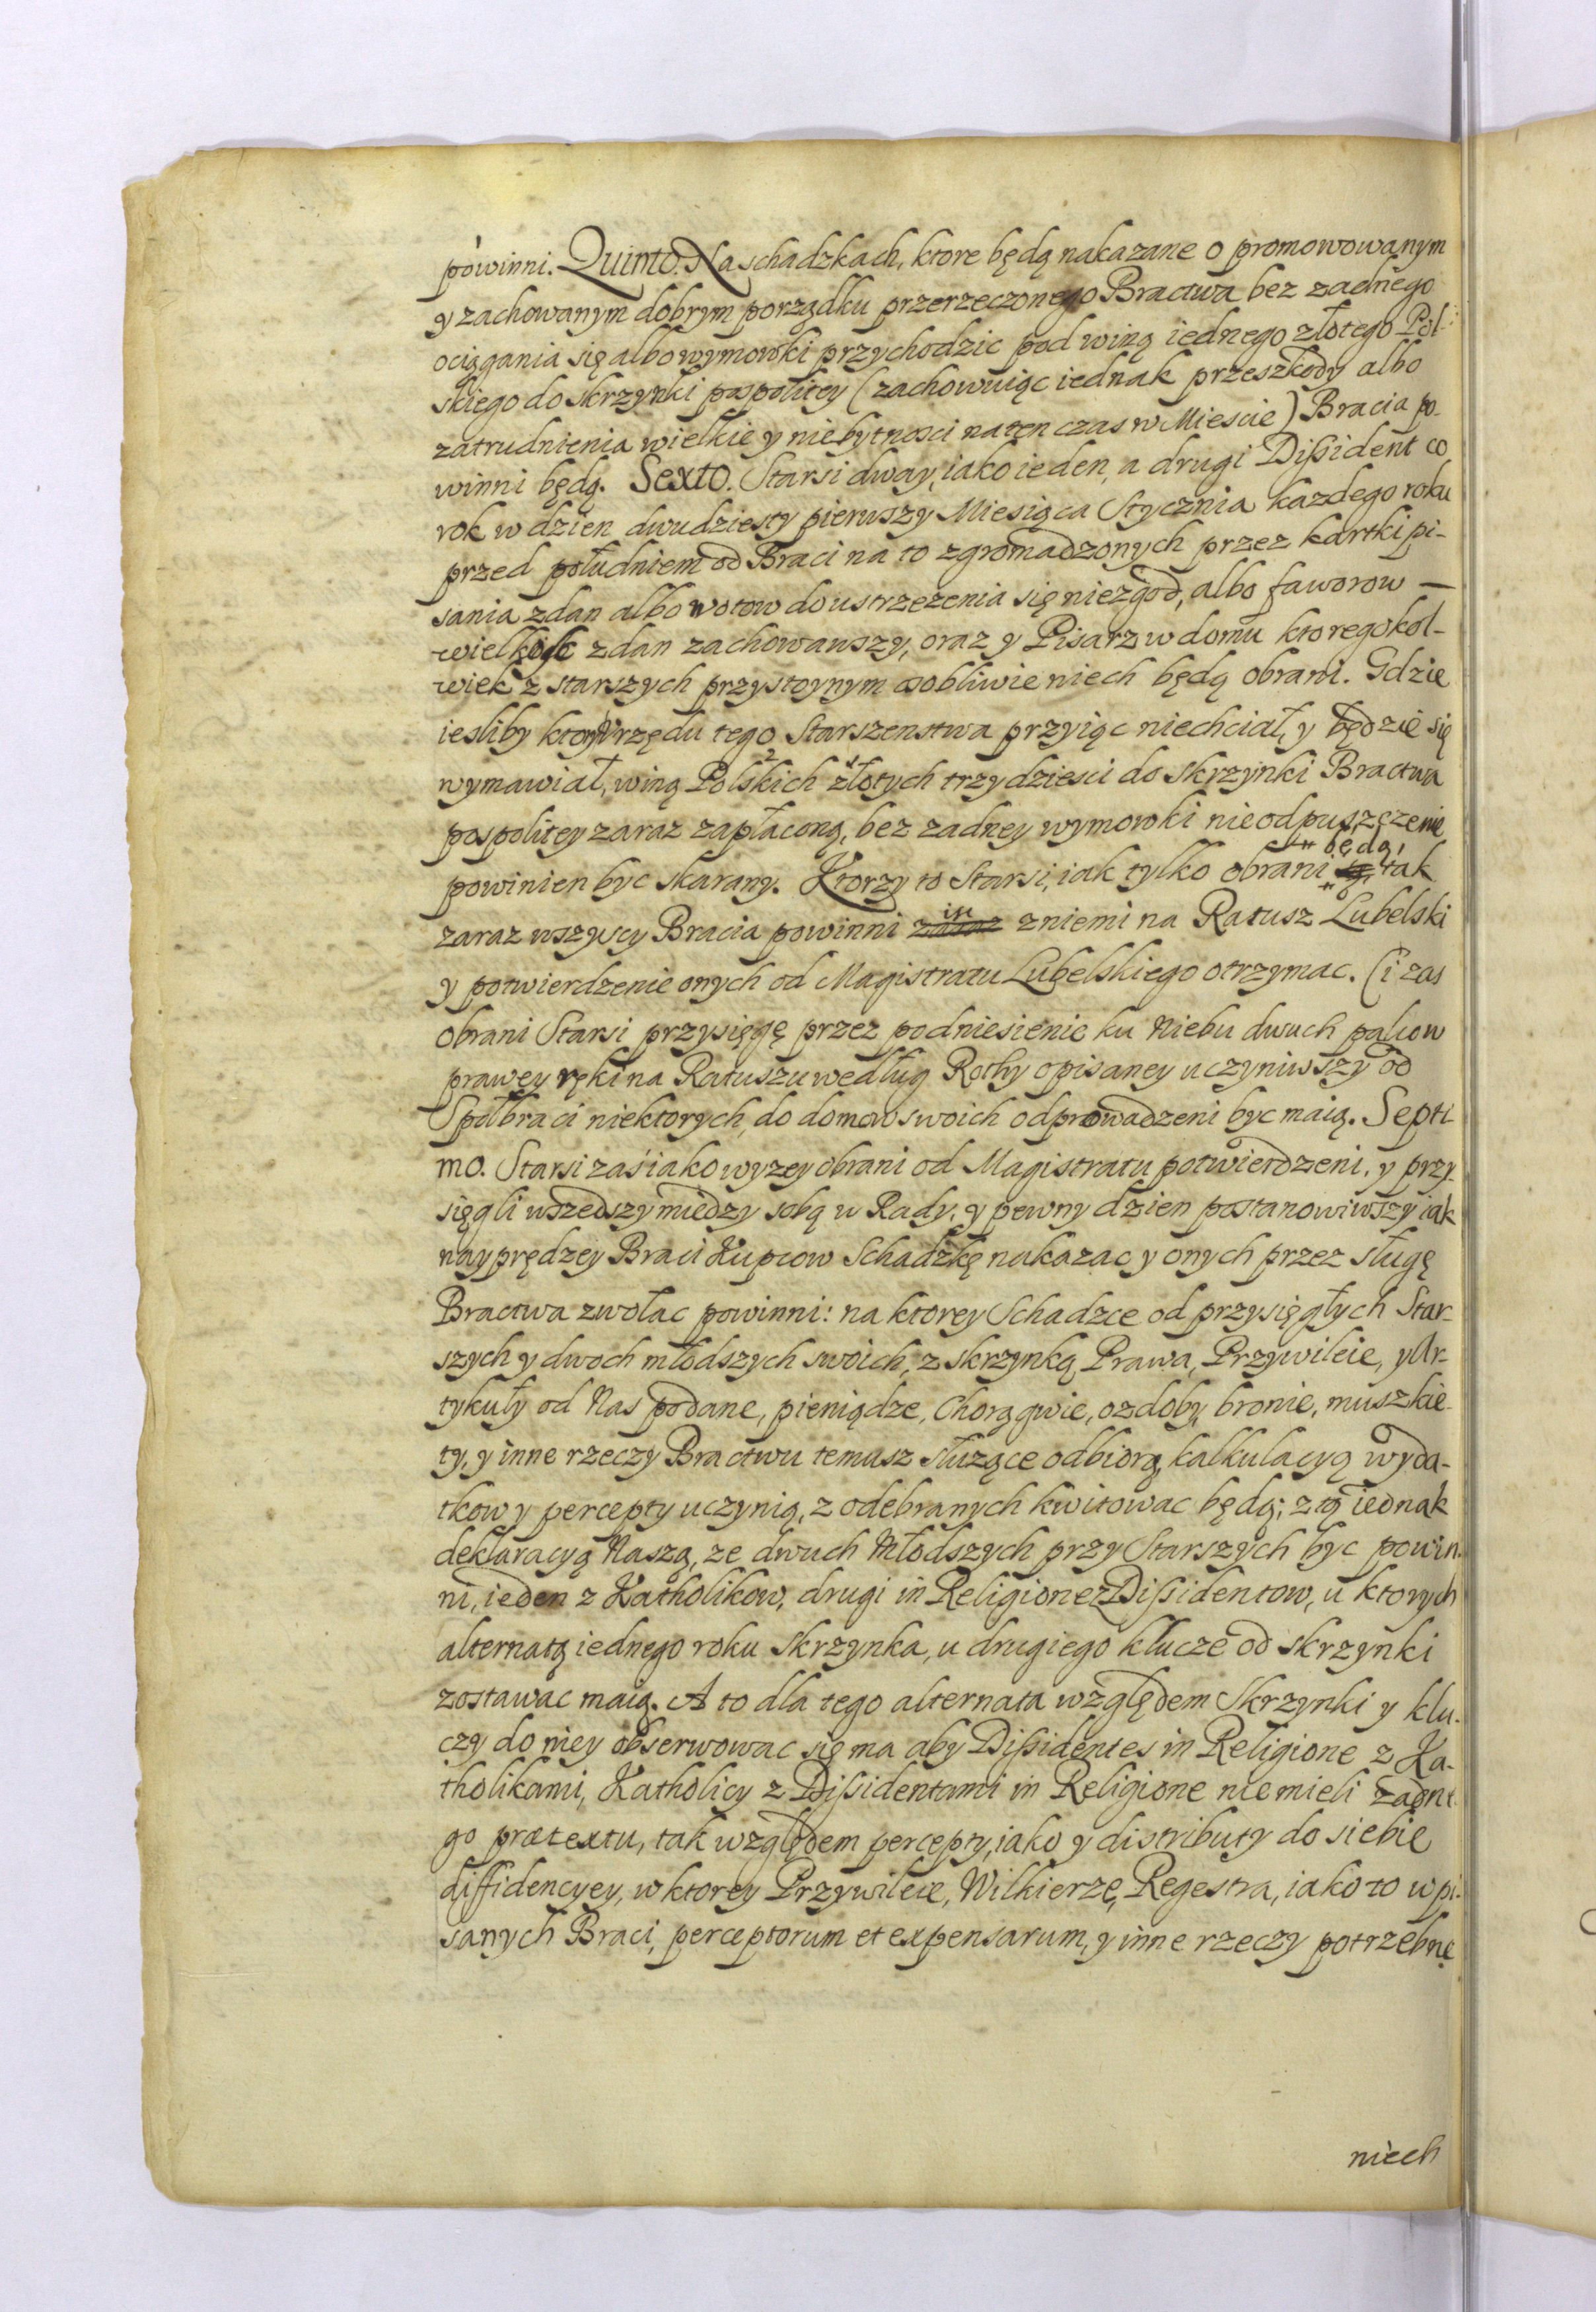 powinni. Quinto. Na schadzkach, ktore będą nakazane o promowowanym
y zachowanym dobrym porządku przerzeczonego Bractwa bez zadnego
ociągania się albo wymowki przychodzic pod winą iednego złotego Pol-
skiego do skrzynki pospolitey (zachowuiąc iednak przeszkody albo
zatrudnienia wielkie y niebytnosci na ten czas w Miescie) Bracia po-
winni będą. Sexto. Starsi dway, iako ieden, a drugi Dissident co
rok w dzien dwudziesty pierwszy Miesiąca Stycznia kazdego roku
przed południem od Braci na to zgromadzonych przez kartki pi-
sania zdan albo wotow do ustrzezenia się niezgod, albo faworow —
zdan zachowawszy, oraz y Pisarz w domu ktoregokol-
wiek z starszych przystoynym osobliwie niech będą obrani. Gdzie
iesliby ktory Urzędu tego Starszenstwa przyiąc niechciał, y będzie się
wymawiał, winą Polskich złotych trzydziesci do skrzynki Bractwa
pospolitey zaraz zapłaconą, bez zadney wymowki nieodpuszczenie
powinien byc skarany. Ktorzy to Starsi, iak tylko obrani będą, tak
zaraz wszyscy Bracia powinni isc z niemi na Ratusz Lubelski
y potwierdzenie onych od Magistratu Lubelskiego otrzymac. Ci zas
obrani Starsi przysięgę przez podniesienie ku Niebu dwuch palcow
prawey ręki na Ratuszu według Rothy opisaney uczyniwszy od
Społbraci niektorych, do domow swoich odprowadzeni byc maią. Septi-
mo. Starsi zaś iako wyzey obrani od Magistratu potwierdzeni, y przy-
sięgli wszedszy miedzy sobą w Rady, y pewny dzien postanowiwszy iak
nayprędzey Braci Kupcow Schadzkę nakazac y onych przez sługę
Bractwa zwołac powinni: na ktorey Schadzce od przysięgłych Star-
szych y dwoch młodszych swoich, z skrzynką Prawa, Przywileie, y Ar-
tykuły od Nas podane, pieniądze, Chorągwie, ozdoby, bronie, muszkie-
ty, y inne rzeczy Bractwu temusz słuzące odbiorą, kalkulacyą wyda-
tkow y percepty uczynią, z odebranych kwitowac będą; z tą iednak
deklaracyą Naszą, ze dwuch Młodszych przy Starszych byc powin-
ni, ieden z Katholikow, drugi in Religione z Dissidentow, u ktorych
alternatą iednego roku skrzynka, u drugiego klucze od skrzynki
zostawac maią. A to dla tego alternata względem Skrzynki y klu-
czy do niey obserwowac się ma aby Dissidentes in Religione z Ka-
tholikami, Katholicy z Dissidentami in Religione nie mieli zadne-
go prætextu, tak względem percepty, iako y distributy do siebie
diffidencyey, w ktorey Przywileie, Wilkierze, Regestra, iako to wpi-
sanych Braci, perceptorum et expensarum, y inne rzeczy potrzebne
niech